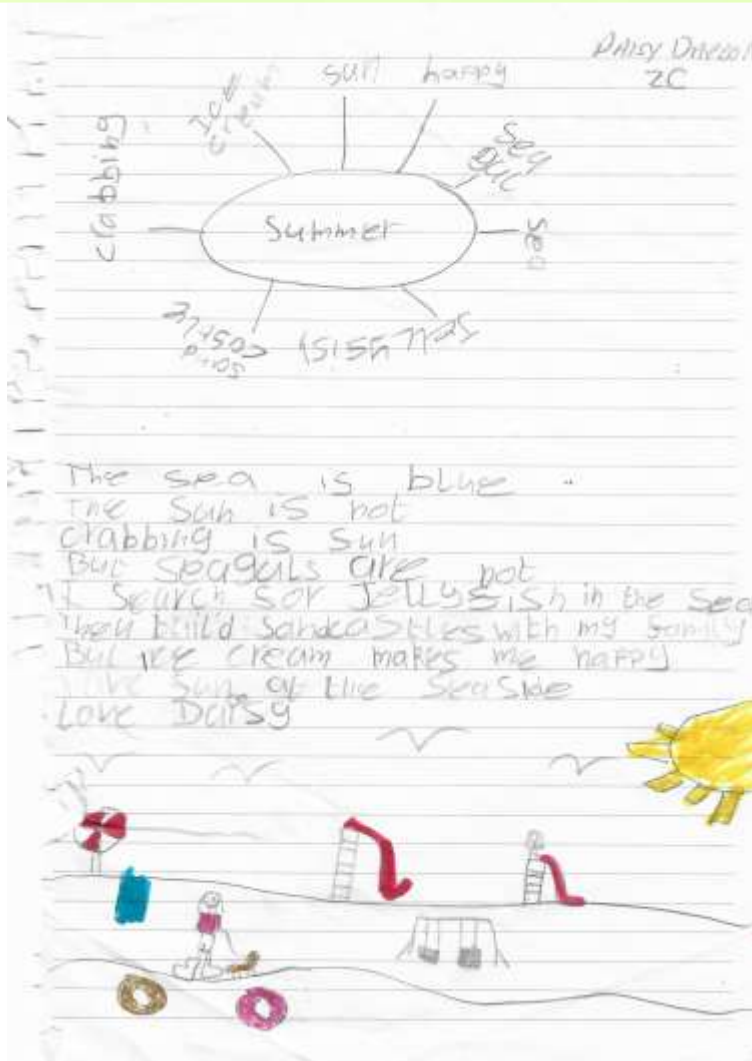 DAISY
2C
sun happy
Ice
cream
crabbing
sea
gul
Summer
sea
sand
castle
The sea is blue
The Sun is hot
crabbing is sun
But seaguls are not
I search sor Jellysish in the sea
build sandcastles with my samily
But ice cream makes me happy
Sun at the SeaSide
Love Daisy